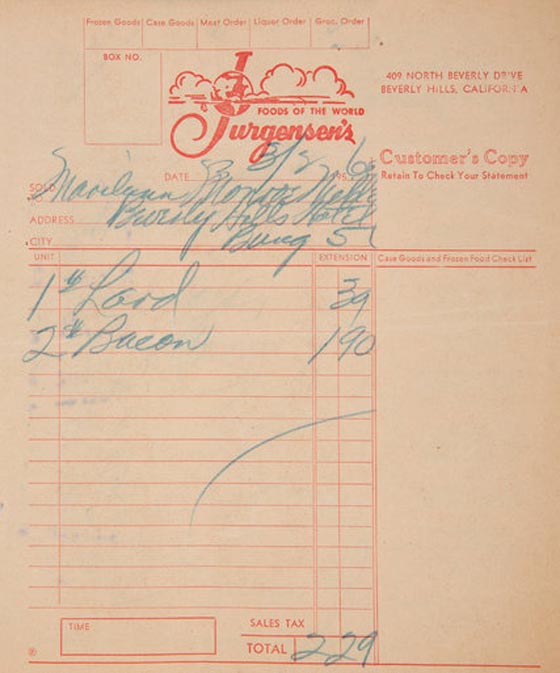 Frozen Goods Case Goods Meat Order Liquor Order Groc. Order
BOX NO.
FOODS OF THE WORLD
Jurgensen's
409 NORTH BEVERLY DRIVE
BEVERLY HILLS, CALIFORNIA
Customer's Copy
Retain To Check Your Statement
DATE 3/2 195
SOLD TO Marilynn Monroe
ADDRESS Beverly Hills Hotel
CITY Bung 5
UNIT EXTENSION Case Goods and Frozen Food Check List
1# Lard 39
2# Bacon 190
TIME
SALES TAX
TOTAL 2 29